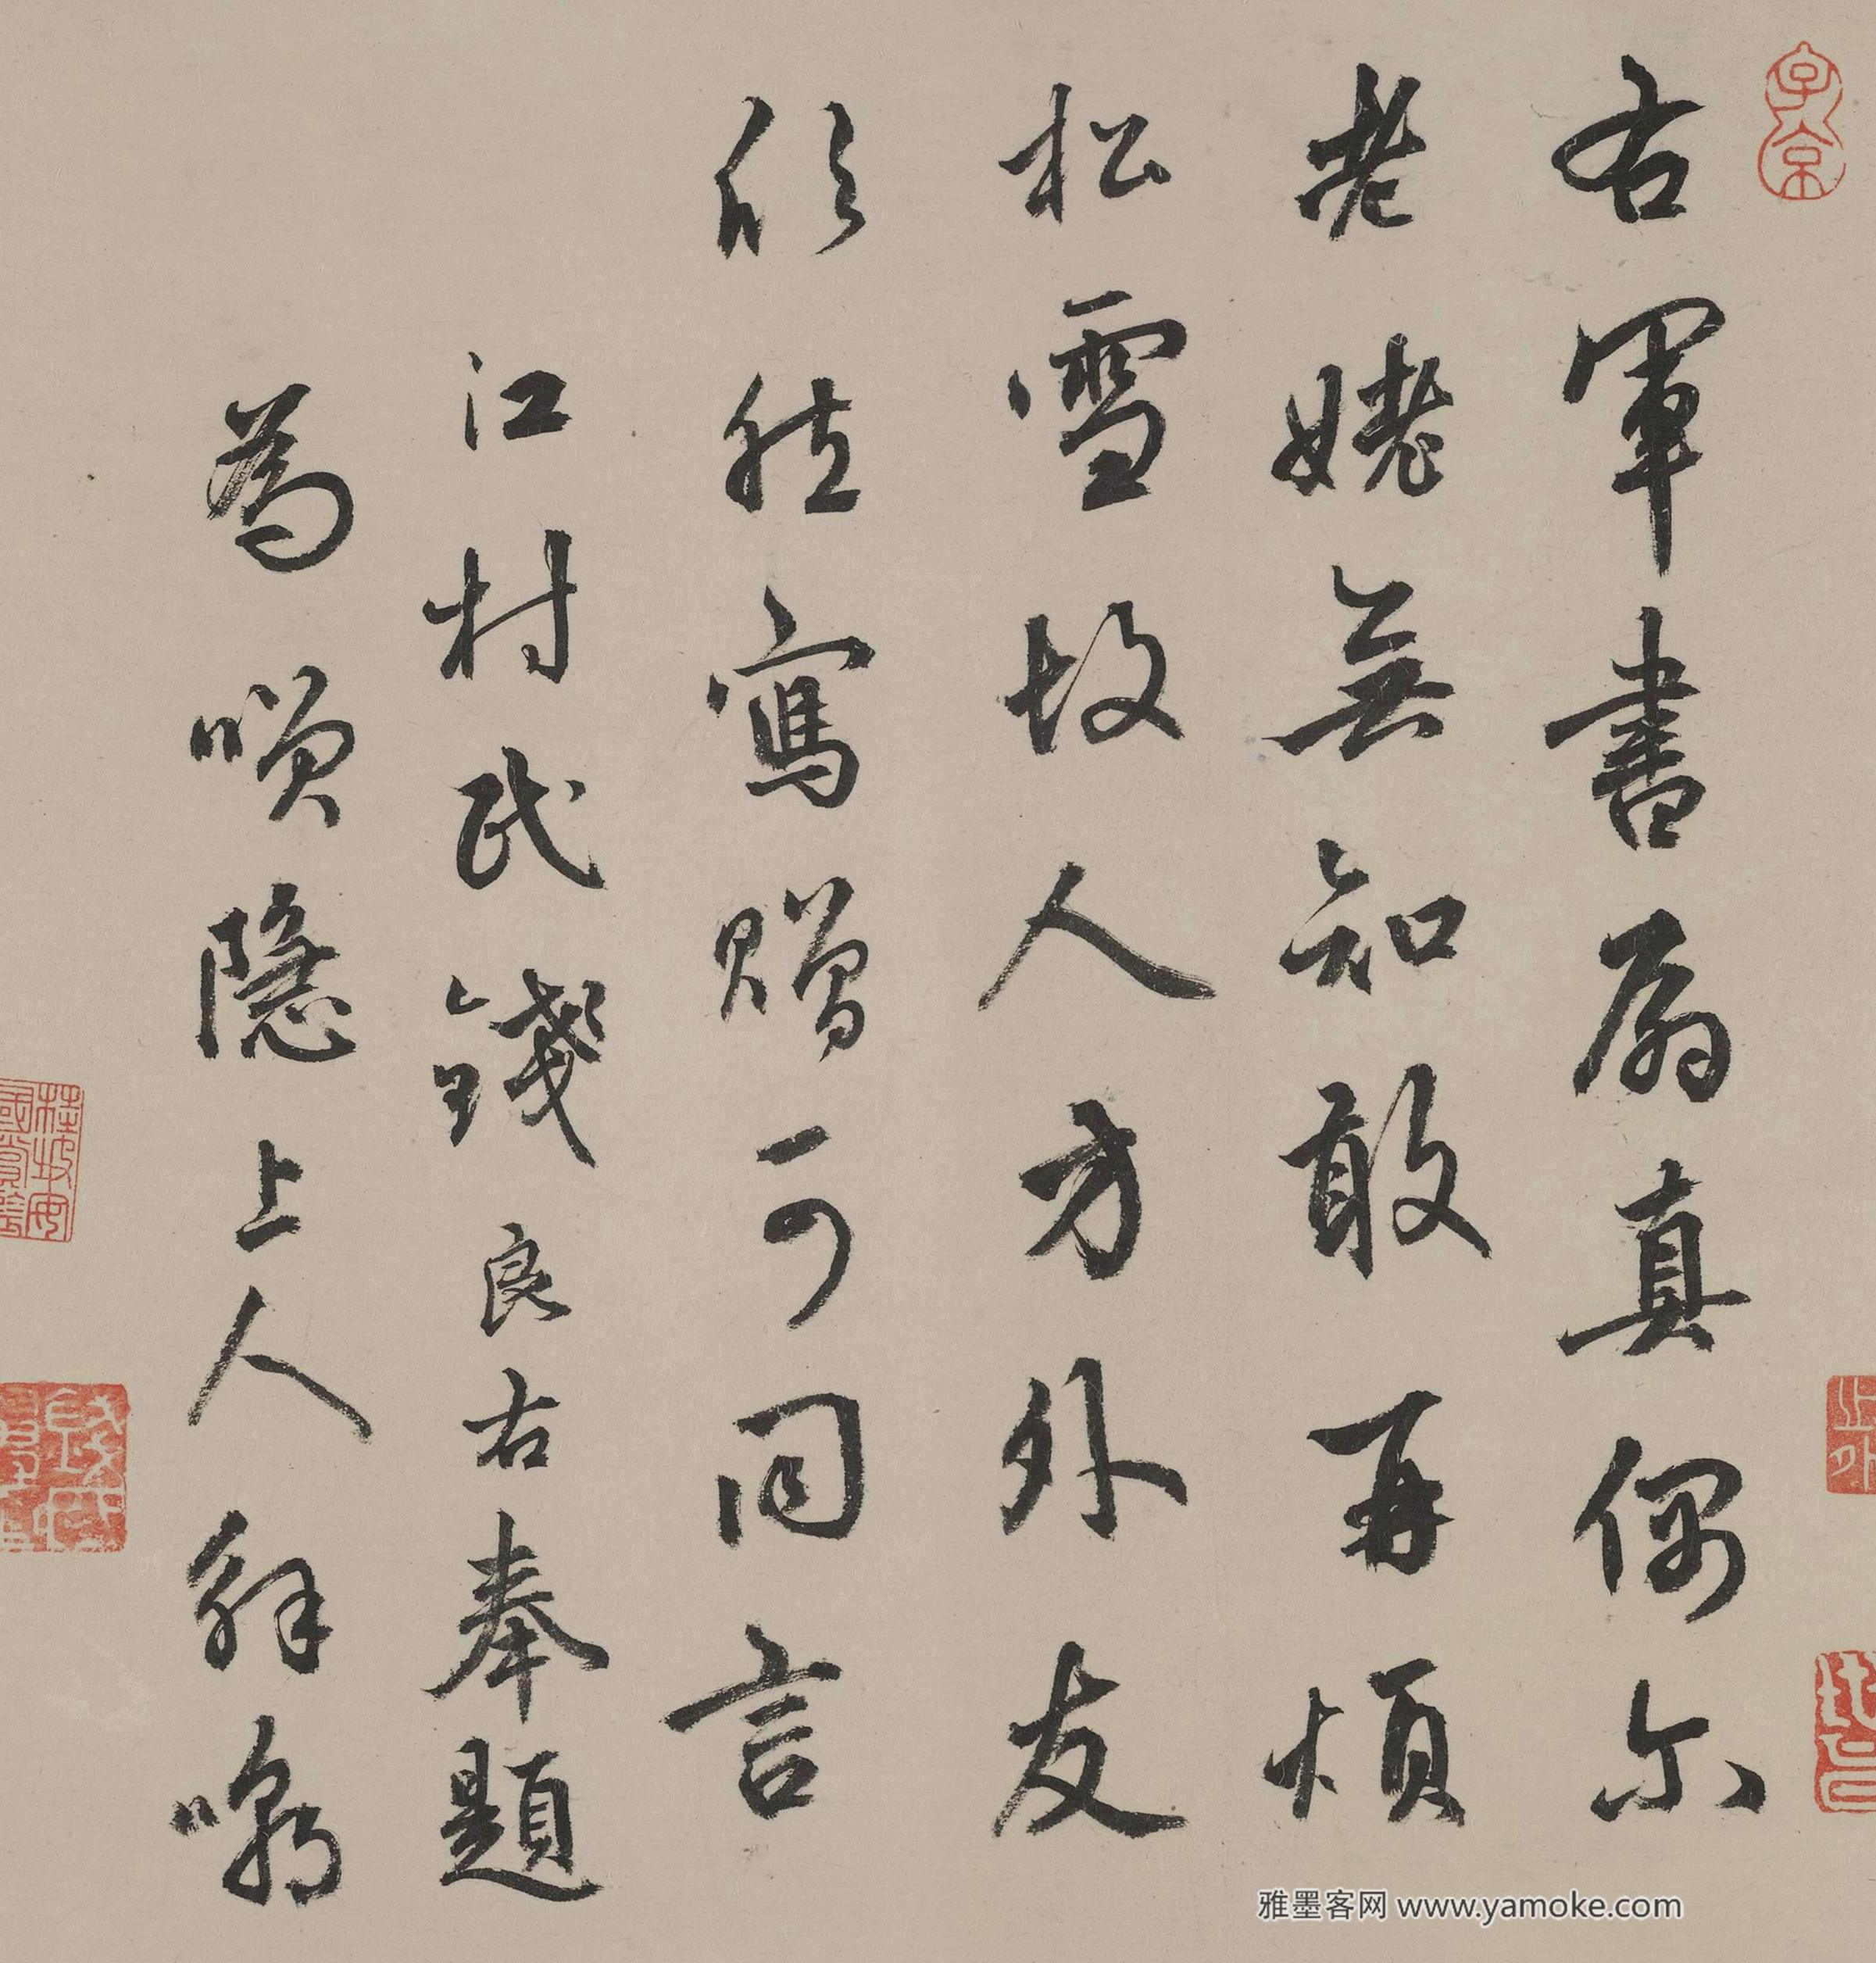 右軍書扇真偶尔
老姥無知敢再煩
松雪故人方外友
欣然寫贈可同言
江村民錢良右奉題
為唄隱上人解嘲
子京
雅墨客网 www.yamoke.com